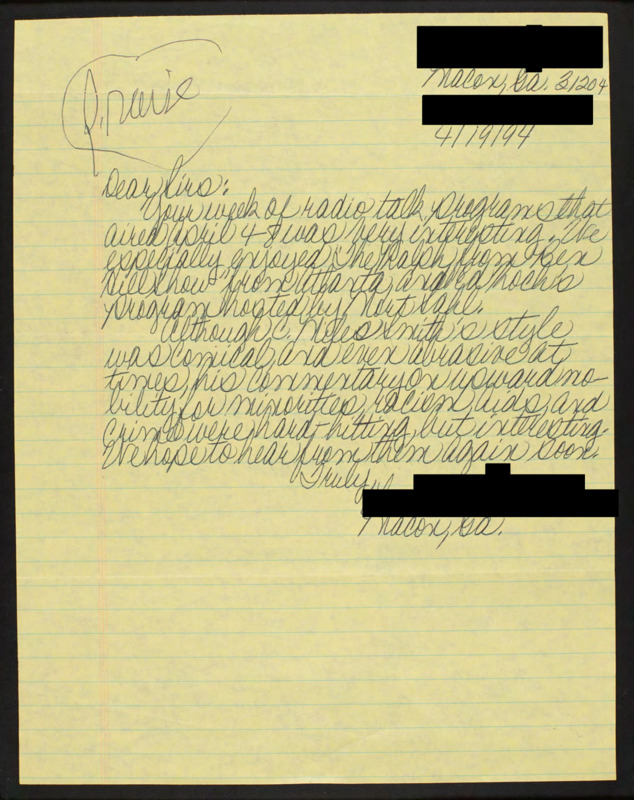 Praise
Macon, Ga. 31204
4/19/94
Dear Sirs:
Your week of radio talk programs that
aired April 4-8 was very interesting. We
especially enjoyed The Ralph from Ben
Hill show from Atlanta and Ed
program hosted by
Although C. Miles Smith's style
was comical and even abrasive at
times, his commentary on upward mo-
bility for minorities, racism, aids, and
crime were hard-hitting, but interesting.
We hope to hear from them again soon.
Truly,
Macon, Ga.